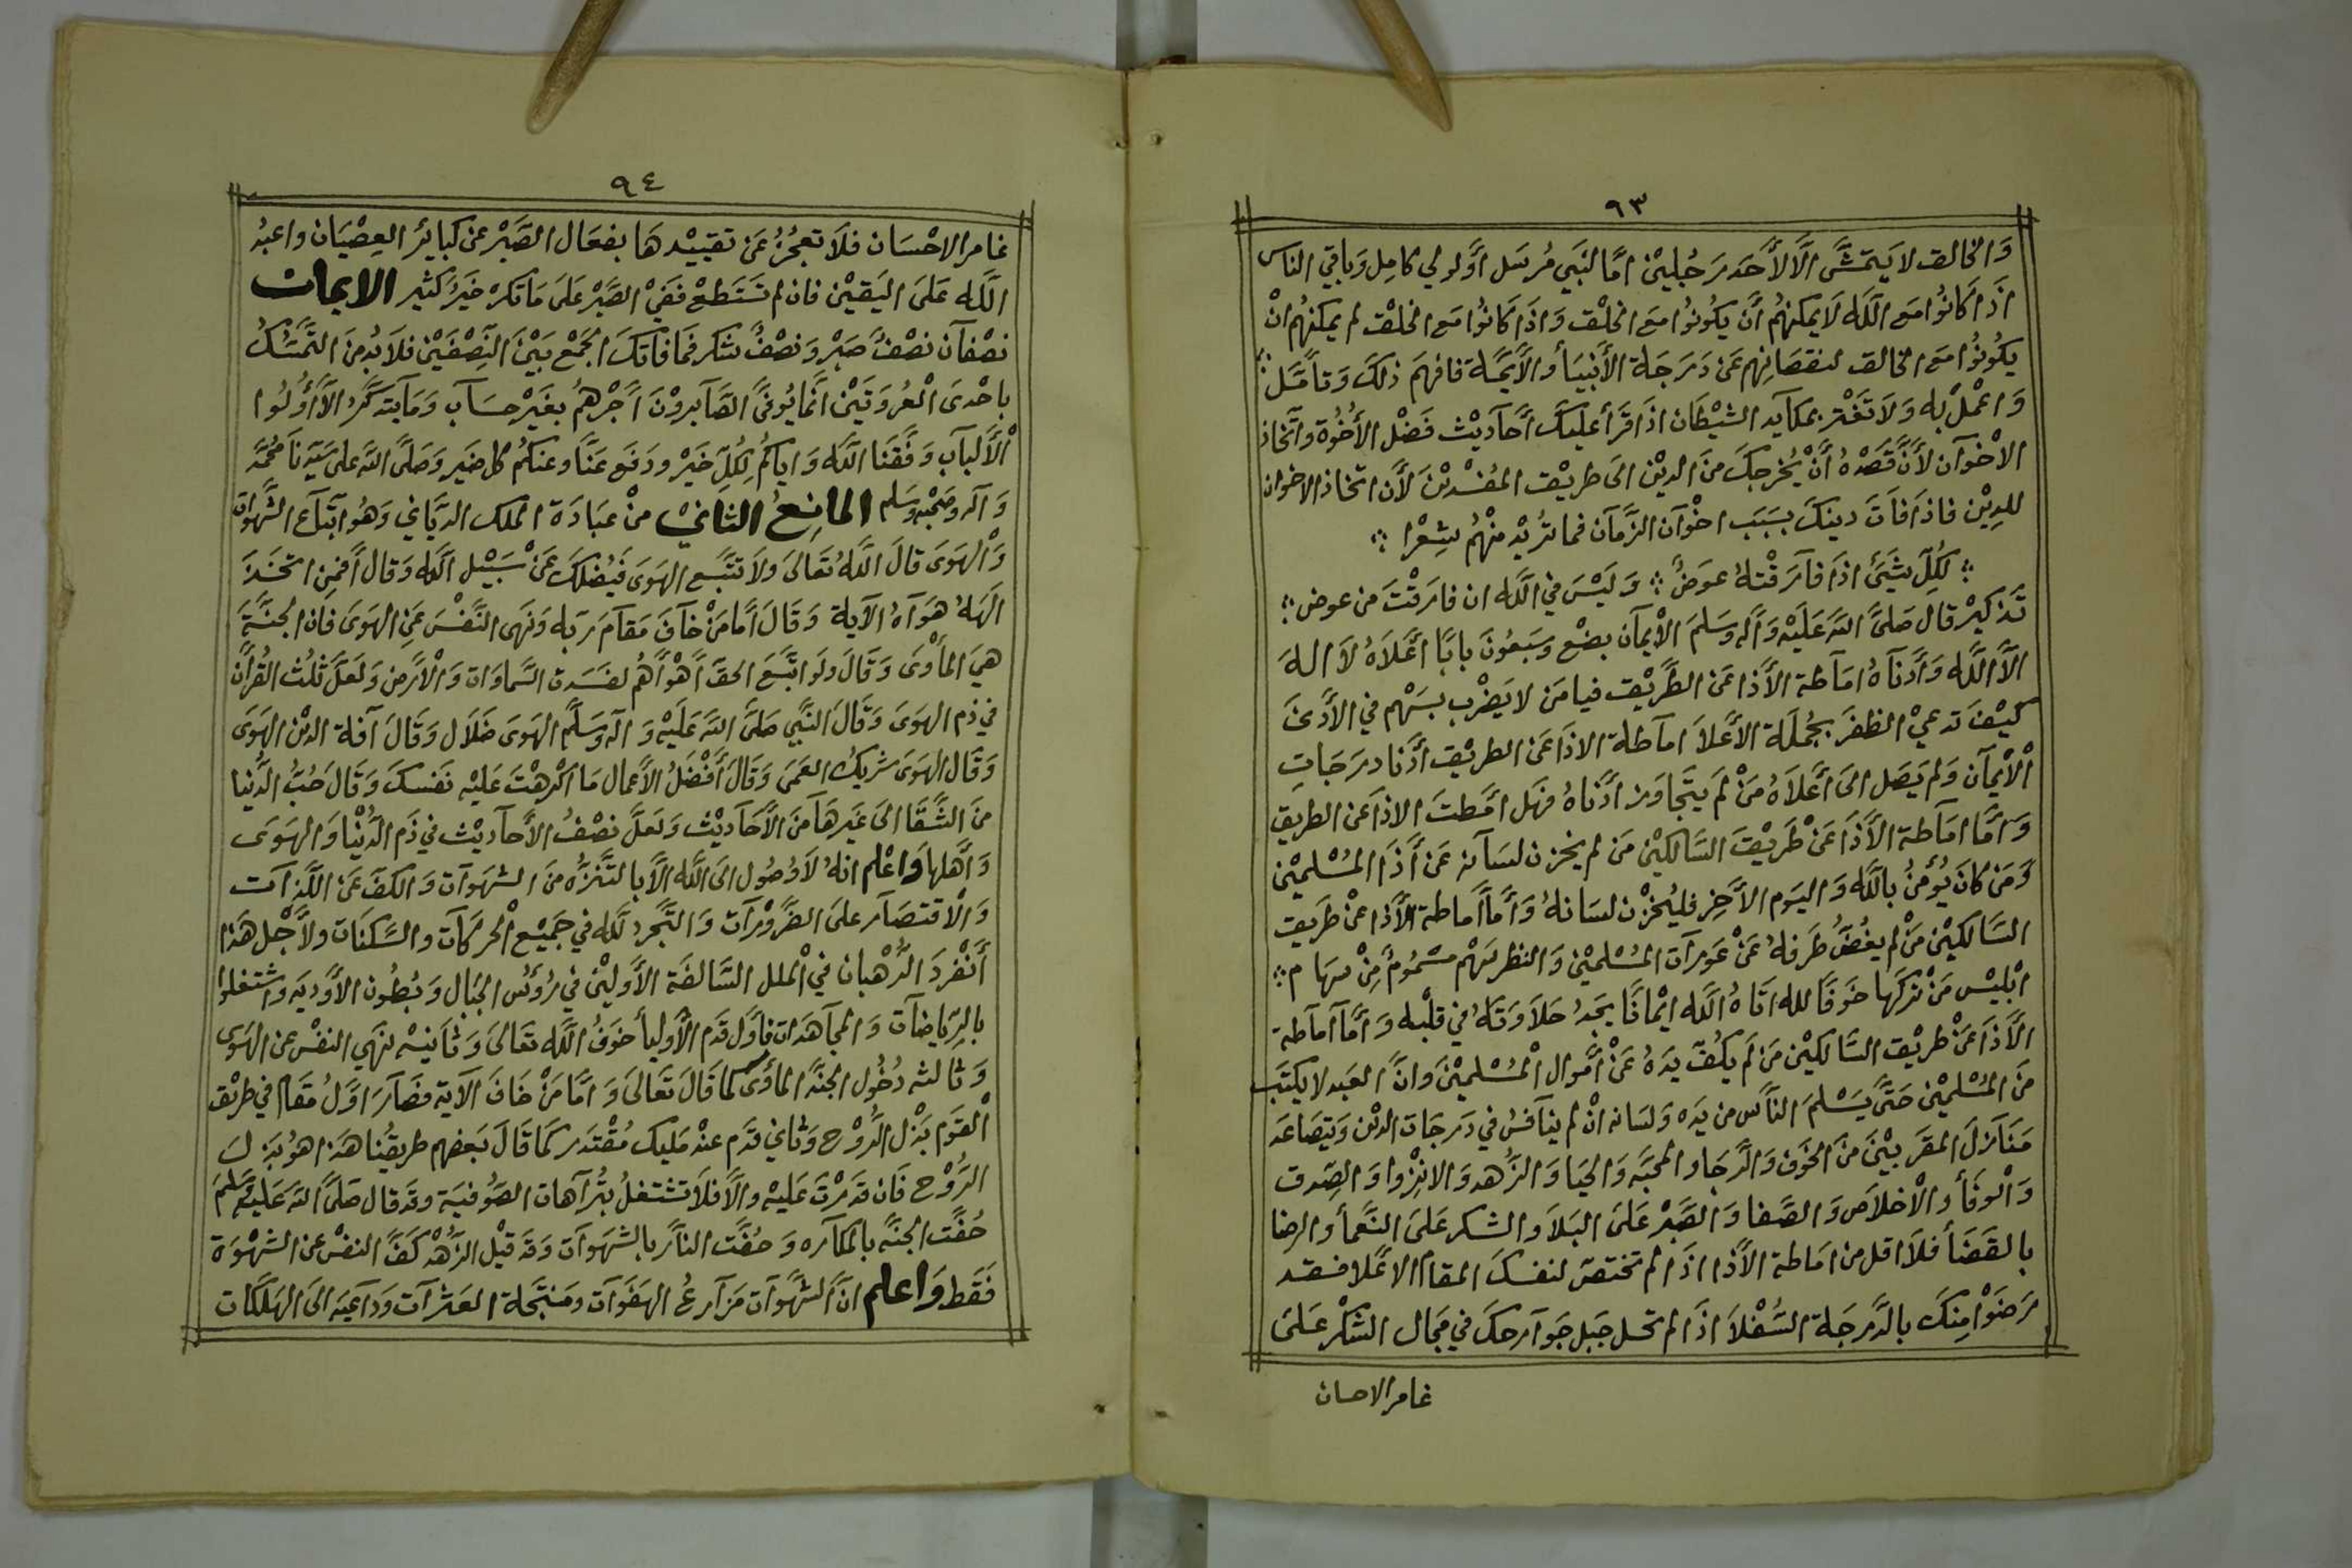 ٩٣
وَالخالق لا يَتمَشَّى الَّا لأَحَد رَجُلَيْن امَّا لنَبي مُرسَل أوَّلولي كامِل وَبَاقي الناس
اذَا كَانُوا مَع اللَّه لاَ يمكنهُم أَن يكُونُوا مَعَ الخلْق وَاذَا كَانُوا مَع الخلْق لم يمكنهُم انْ
يكُونُوا مَع الخالق لنقصَانِهم عَن دَرَجَة الأَنبيَأ والأَيمَّة فافهَم ذلكَ وَتأمَّل ؛
وَاعْملْ به وَلاَ تَغْتر بمكايد الشيْطَان اذَا قَرَأ عليكَ أَحَاديْث فَضْل الأخُوَّة واتّخاذ
الاخْوَآن لأَنَّ قَصْدهُ أَنْ يُخرجكَ منَ الديْن الَى طريْق المُفسْديْنَ لأَن اتخاذ الاخوان
للدِيْن فاذَا فَاتَ دينكَ بسَبَب اخْوَآن الزَّمَآن فما تُريْد منْهُم شِعْرا ؛
؛ لكُلّ شَئ اذَا فَارَقْتهُ عوَضٌ ؛ وَلَيْسَ في اللَّه ان فارَقْتَ من عوض ؛
تَذكيْر قال صَلَّى اللهُ عَلَيْه وَآله وسَلمَ الأيمآن بضْع وسَبعُونَ بابًا اعْلَاهُ لاَ الهَ
الاَّ اللَّه وَادْنَآهُ امَآطة الأَذا عَن الطَّريْق فيامَن لا يَضْرب بسَهْم في الأَدْنَى
كيْفَ تدعيْ الظفَرَ بجُملَة الأَعْلاَ امآطة الاذَا عَن الطريْق أَدْنا درَجَاتِ
الأيْمآن وَلم يَصَل الَى أَعْلَاهُ مَنْ لَم يتَجَاوَز ادْنَاهُ فهَل امَطتَ الاذَا عَن الطريق
وَامَّا امَآطة الأَذَا عَنْ طَريْقَ السَّالكيْن مَن لم يخزن لسَآنه عَن أَذَا المُسْلميْن
وَمَن كانَ يُؤمنُ باللَّه وَاليَوم الأَخِر فليُخْزن لسَانهُ وَأَمَّا أماطة الأَذا عنْ طَريق
السَّالكيْن مَنْ لم يغُضَّ طَرفهُ عَنْ عَورَآت المُسْلميْن وَالنظر سَهْم مسْمُومٌ مِنْ سهَا م ؛
ابْليْس مَنْ تركهَا خَوفًا لله اتَاهُ اللَّه ايْمانًا يجَدُ حَلاَوَتهُ في قلْبه وَأمَّا أمآطة
الأَذَا عَنْ طريْق السَّالكيْن مَن لَم يكُفّ يدَهُ عَنْ أَمْوَال المُسْلميْنَ وانَّ العَبد لا يكتَب
منَ المُسْلميْن حَتَّى يَسْلمَ النَّاس من يَده وَلسَانه انْ لم ينَآفسُ في دَرجَات الديْن وَيتصَاعَد
مَنَآزلَ المقرَّبيْنَ منَ الخَوْف وَالرَّجَاء والمحَبَّه وَالحيَا وَالزُّهد وَالانزِوَا وَالصِّدق
وَالوفَأ والْاخلاَص وَالصَّفا وَالصَّبْر عَلَى البَلاَ والشكر عَلَى النَّعمأ والرضا
بالقَضَأ فلاَ اقل من امَاطة الأَذا اذَا لم تختصّ لنفسكَ المقام الاعْلا فقد
رَضَوْا منكَ بالدَّرجَة السُّفْلاَ اذَا لم تحل جَبل جَوَآرحكَ في مجَال الشكْر عَلَى
غامر الاحسان
٩٤
غامر الاحْسَان فلاَ تعجُزُ عَن تقييْدهَا بفعَال الصَّبْر عن كبايئر العِصْيَان واعبُد
اللَّه عَلَى اليَقيْن فان لم تسْتَطعْ ففيْ الصَّبْر عَلَى مَا تكرهْ خَيْر كثير الايمان
نصْفآن نصْفٌ صَبْر وَنصْفٌ شكر فما فاتكَ الجَمْع بَيْنَ النِّصْفَيْن فلاَ بُد منَ التَّمسّكْ
باحْدَى الْعُروَتَيْن انَّما يُوفَّى الصَّآبروْنَ أَجْرهُمْ بغَيْر حسَآب وَمَا يتذكَّر الأَّ أُولُوا
الأَلبآب وَفَّقنَا اللَّه وَاياكُم لكُلِّ خَيْر ودَفَع عَنَّا وعنكُم كل ضَير وَصَلَّى اللهُ على سَيّدنَا مُحمَّد
وَآله وَصَحْبه وسَلم المانِعُ الثانيْ منْ عبَادَة الملك الربَّاني وَهُوَ اتبَآع الشَّهوَآت
وَالْهَوَى قالَ اللَّهُ تعَالَى وَلاَ تتبَّع الهَوَى فيُضلكَ عَنْ سَبيْل اللَّه وَقال أَفَمن اتخَذَ
الهَهُ هَوَآهُ الآيَة وَقَالَ أمَّا مَنْ خَآفَ مَقآمَ رَبه وَنَهَى النَّفْسَ عَنِ الهَوَى فان الجنَّةَ
هيَ المأْوَى وَقَالَ ولَو اتَّبعَ الحقُّ أهْوَاءهُم لفسَدت السَّماوَات وَالأرض وَلعَلَّ ثلُث القُرْآن
في ذم الهَوَى وَقَالَ النَّبي صَلَّى اللهُ عَلَيْه وَآله وسَلَّم الهَوَى ضَلاَل وَقَالَ آفة الديْن الهَوَى
وَقَال الهَوَى شريكُ العَمَى وَقَالَ أَفْضَلُ الأَعمال مَا اكْرهْتَ عَليْه نَفسكَ وَقَالَ حُبُّ الدُّنيا
منَ الشَّقَا الَى غَيرهَا منَ الأَحَاديْث وَلعَلَّ نصْفُ الأَحآديْث في ذَم الدُّنْيا وَالهَوَى
وَأَهلهَا وَاعْلم انهُ لاَ وُصُول الَى اللَّه الأَّ بالتَّنزُّه منَ الشهَوَآت وَالكَفّ عَن اللَّذآت
وَالْاقتصَآر علَى الضَّروْرآت وَالتَّجَرد للَّه في جَميْع الحرَكَآت والسَّكنَات ولأَجْل هَذا
أَنْفرَدَ الرُّهْبان فيْ الملل السَّالفَة الأَوليْن في رُؤُس الجبَال وَبُطُون الأَوديَه وَاشتغلوا
بالرّيَاضآت وَالمجآهَدات فأوَّل قَدَم الأَوليأ خوَفُ اللَّه تعَالَى وَثانيْه لنهَي النفْس عن الهَوَى
وَثالثه دُخُول الجنَّة المأوَى كما قَالَ تَعَالَى وَامَّا مَنْ خَافَ الآيَة فصَآرَ اوَّلُ مقَام في طريْق
القوم بَذْل الرُّوْح وَثاني قَدَم عنْد مَليك مُقْتَدر كَمَا قَالَ بَعضهم طريقُنا هَذا هوُ بَذل
الرُّوْح فَان قدَرْتَ عَليْه والأَّ فلاَ تشتغلُ بتُرآهات الصُّوفيَة وقَد قال صَلَّى اللهُ عَليْه وسَلمَ
حُفَّت الجنَّة بالمكآره وَحُفَّت النَّار بالشهَوَآت وَقَد قيْل الزُّهْد كَفّ النفْس عن الشهْوَة
فَقَط وَاعلم انَّ الشَّهوَآت مَزآرعُ الهَفَوَآت ومَنتجَة العَثرآت وَدَآعيَة الَى الهَلكَات